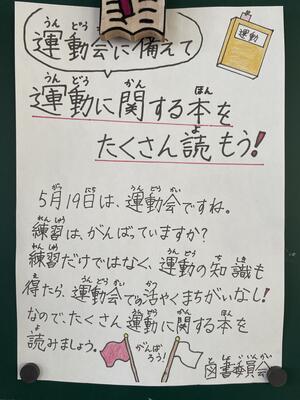 運動会に備えて
運動
運動に関する本を
たくさん読もう!
5月19日は、運動会ですね。
練習は、がんばっていますか?
練習だけではなく、運動の知識も
得たら、運動会での活やくまちがいなし!
なので、たくさん運動に関する本を
読みましょう。
がんばろう!
図書委員会